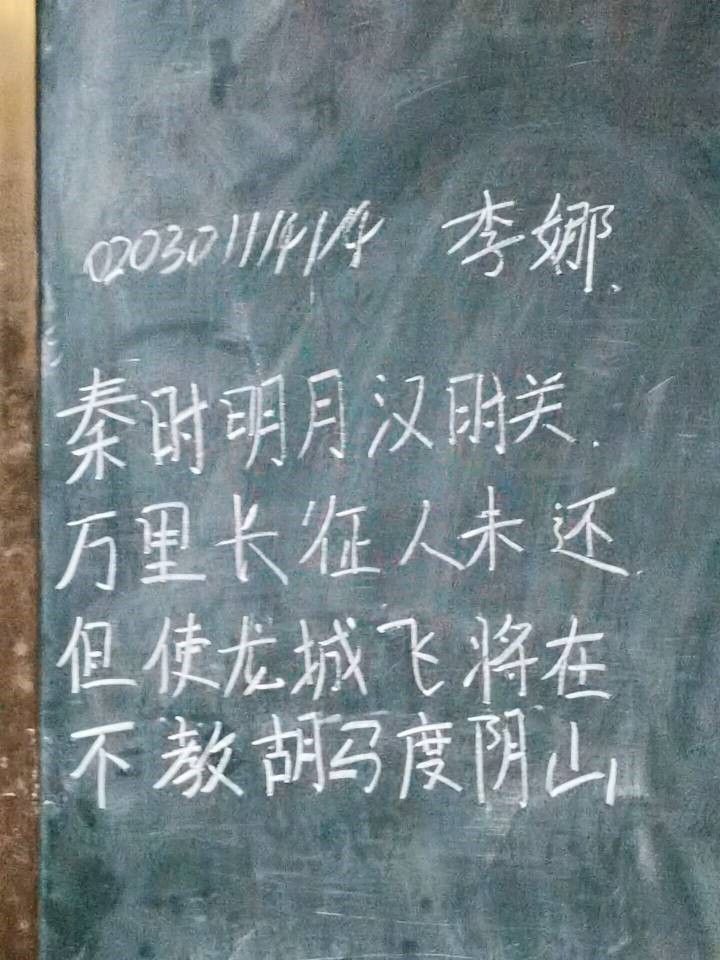 020301111414 李娜.
秦时明月汉时关.
万里长征人未还.
但使龙城飞将在
不教胡马度阴山